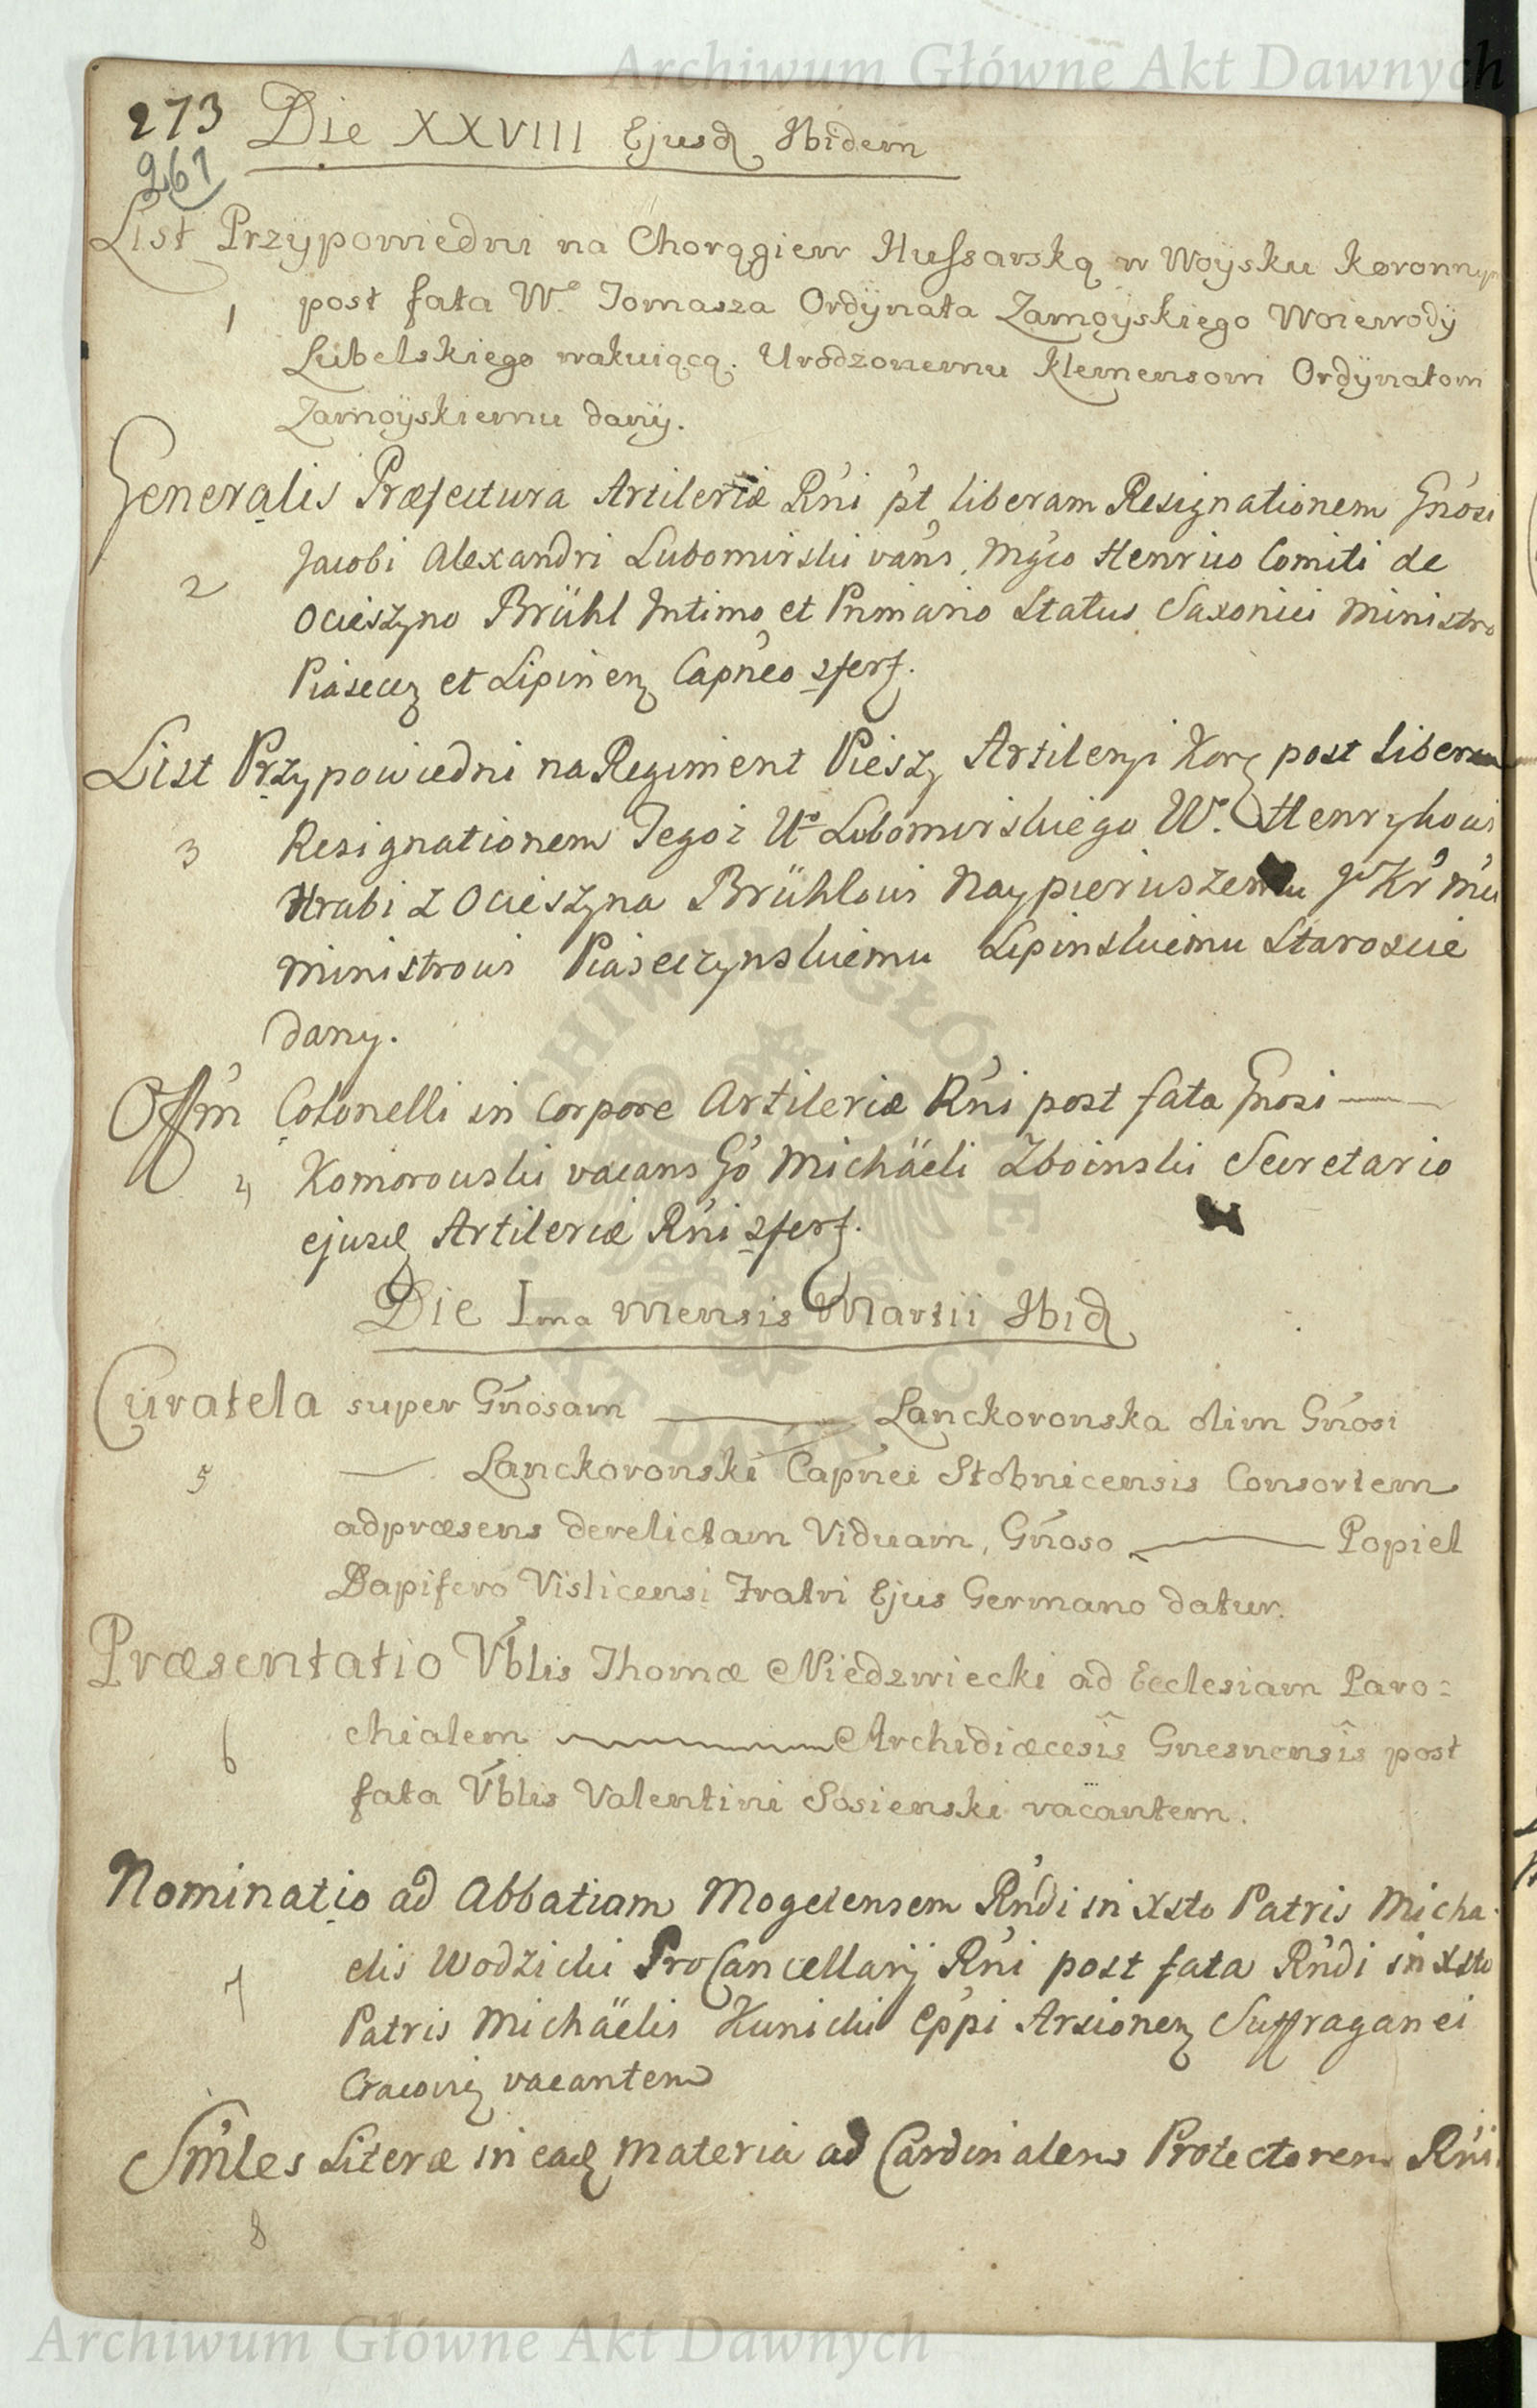 Archiwum Główne Akt Dawnych
273
261
Die XXVIII Ejusd Ibidem
List Przÿpowiedni na Chorągiew Hussarską w Woÿsku Koronnym
1
post fata Wo Tomasza Ordÿnata Zamoÿskiego Woiewodÿ
Lubelskiego wakuiącą. Urodzonemu Klemensowi Ordÿnatowi
Zamoÿskiemu danÿ.
Generalis Præfectura Artileriæ Rńi pt liberam Resignationem Gnosi
2
Jacobi Alexandri Lubomirski vans, Mgco Henrico Comiti de
Ocieszyno Brühl Intimo et Primario Status Saxonici Ministro
Piasecz et Lipinenz Capneo sfert.
List Przypowiedni na Regiment Pieszy Artileryi Kor post liberam
3
Resignationem Tegoż Uo Lubomirskiego W. Henrykowi
Hrabi z Ocieszyna Brühlowi Naypierwszemu JKr Mci
Ministrowi Piaseczynskiemu Lipinskiemu Staroscie
dany.
Offm Colonelli in Corpore Artileriæ Rńi post fata Gnosi
4
Komorowski vacans Go Michäeli Zboinski Secretario
ejusd Artileriæ Rńi sfert.
Die Ima Mensis Martii Ibid
Curatela super Gńosam Lanckoronska olim Gńosi
5
Lanckoronski Capnei Stobnicensis Consortem
adpræsens derelictam Viduam, Gńoso Popiel
Dapifero Vislicensi Fratri Ejus Germano datur.
Præsentatio Vblis Thomæ Niedzwiecki ad Ecclesiam Paro=
6
chialem Archidiæcesis Gnesnensis post
fata Vblis Valentini Sosienski vacantem.
Nominatio ad Abbatiam Mogelensem Rńdi in Xsto Patris Micha
7
elis Wodzicki ProCancellarij Rńi post fata Rńdi in Xsto
Patris Michäelis Kunicki Eppi Arsionen Suffraganei
Cracovi vacantem
Smles Literæ in ead materia ad Cardinalem Protectorem Rńi
8
Archiwum Główne Akt Dawnych